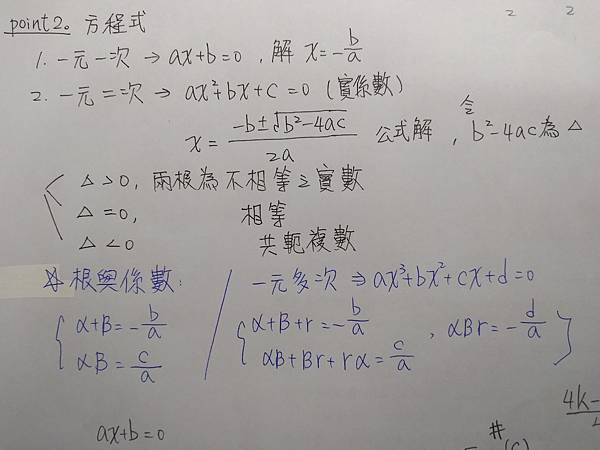 point 2。方程式
1. 一元一次 → ax+b=0 , 解 x=-b/a
2. 一元二次 → ax²+bx+c=0 (實係數)
x = (-b±√(b²-4ac))/2a 公式解 , 令 b²-4ac 為 △
△>0, 兩根為不相等之實數
△=0, 相等
△<0 共軛複數
根與係數:
α+β=-b/a
αβ=c/a
一元多次 ⇒ ax³+bx²+cx+d=0
α+β+r=-b/a , αβr=-d/a
αβ+βr+rα=c/a
ax+b=0
4k-
#
(C)
2 2